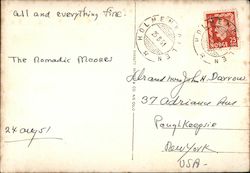 all and everything fine.
The Nomadic Moores
24 aug 51
HOLMENKOLLEN
NORGE
John H. Darrow
37 Adriance Ave
Poughkeepsie
New York
USA.